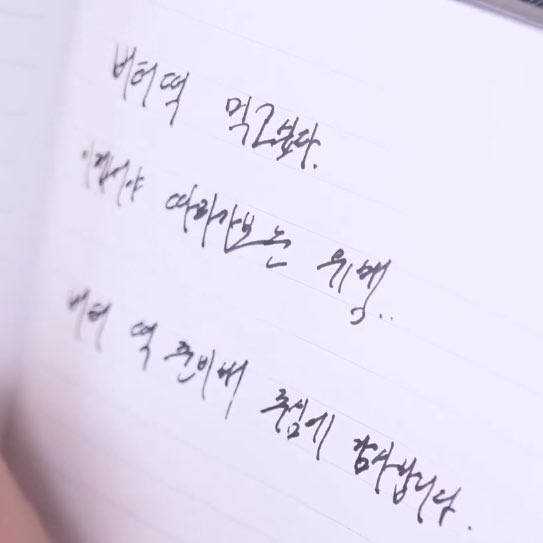 버터떡 먹고싶다.
이제서야 따라가보는 유행..
버터 떡 준비해 주심에 감사합니다.